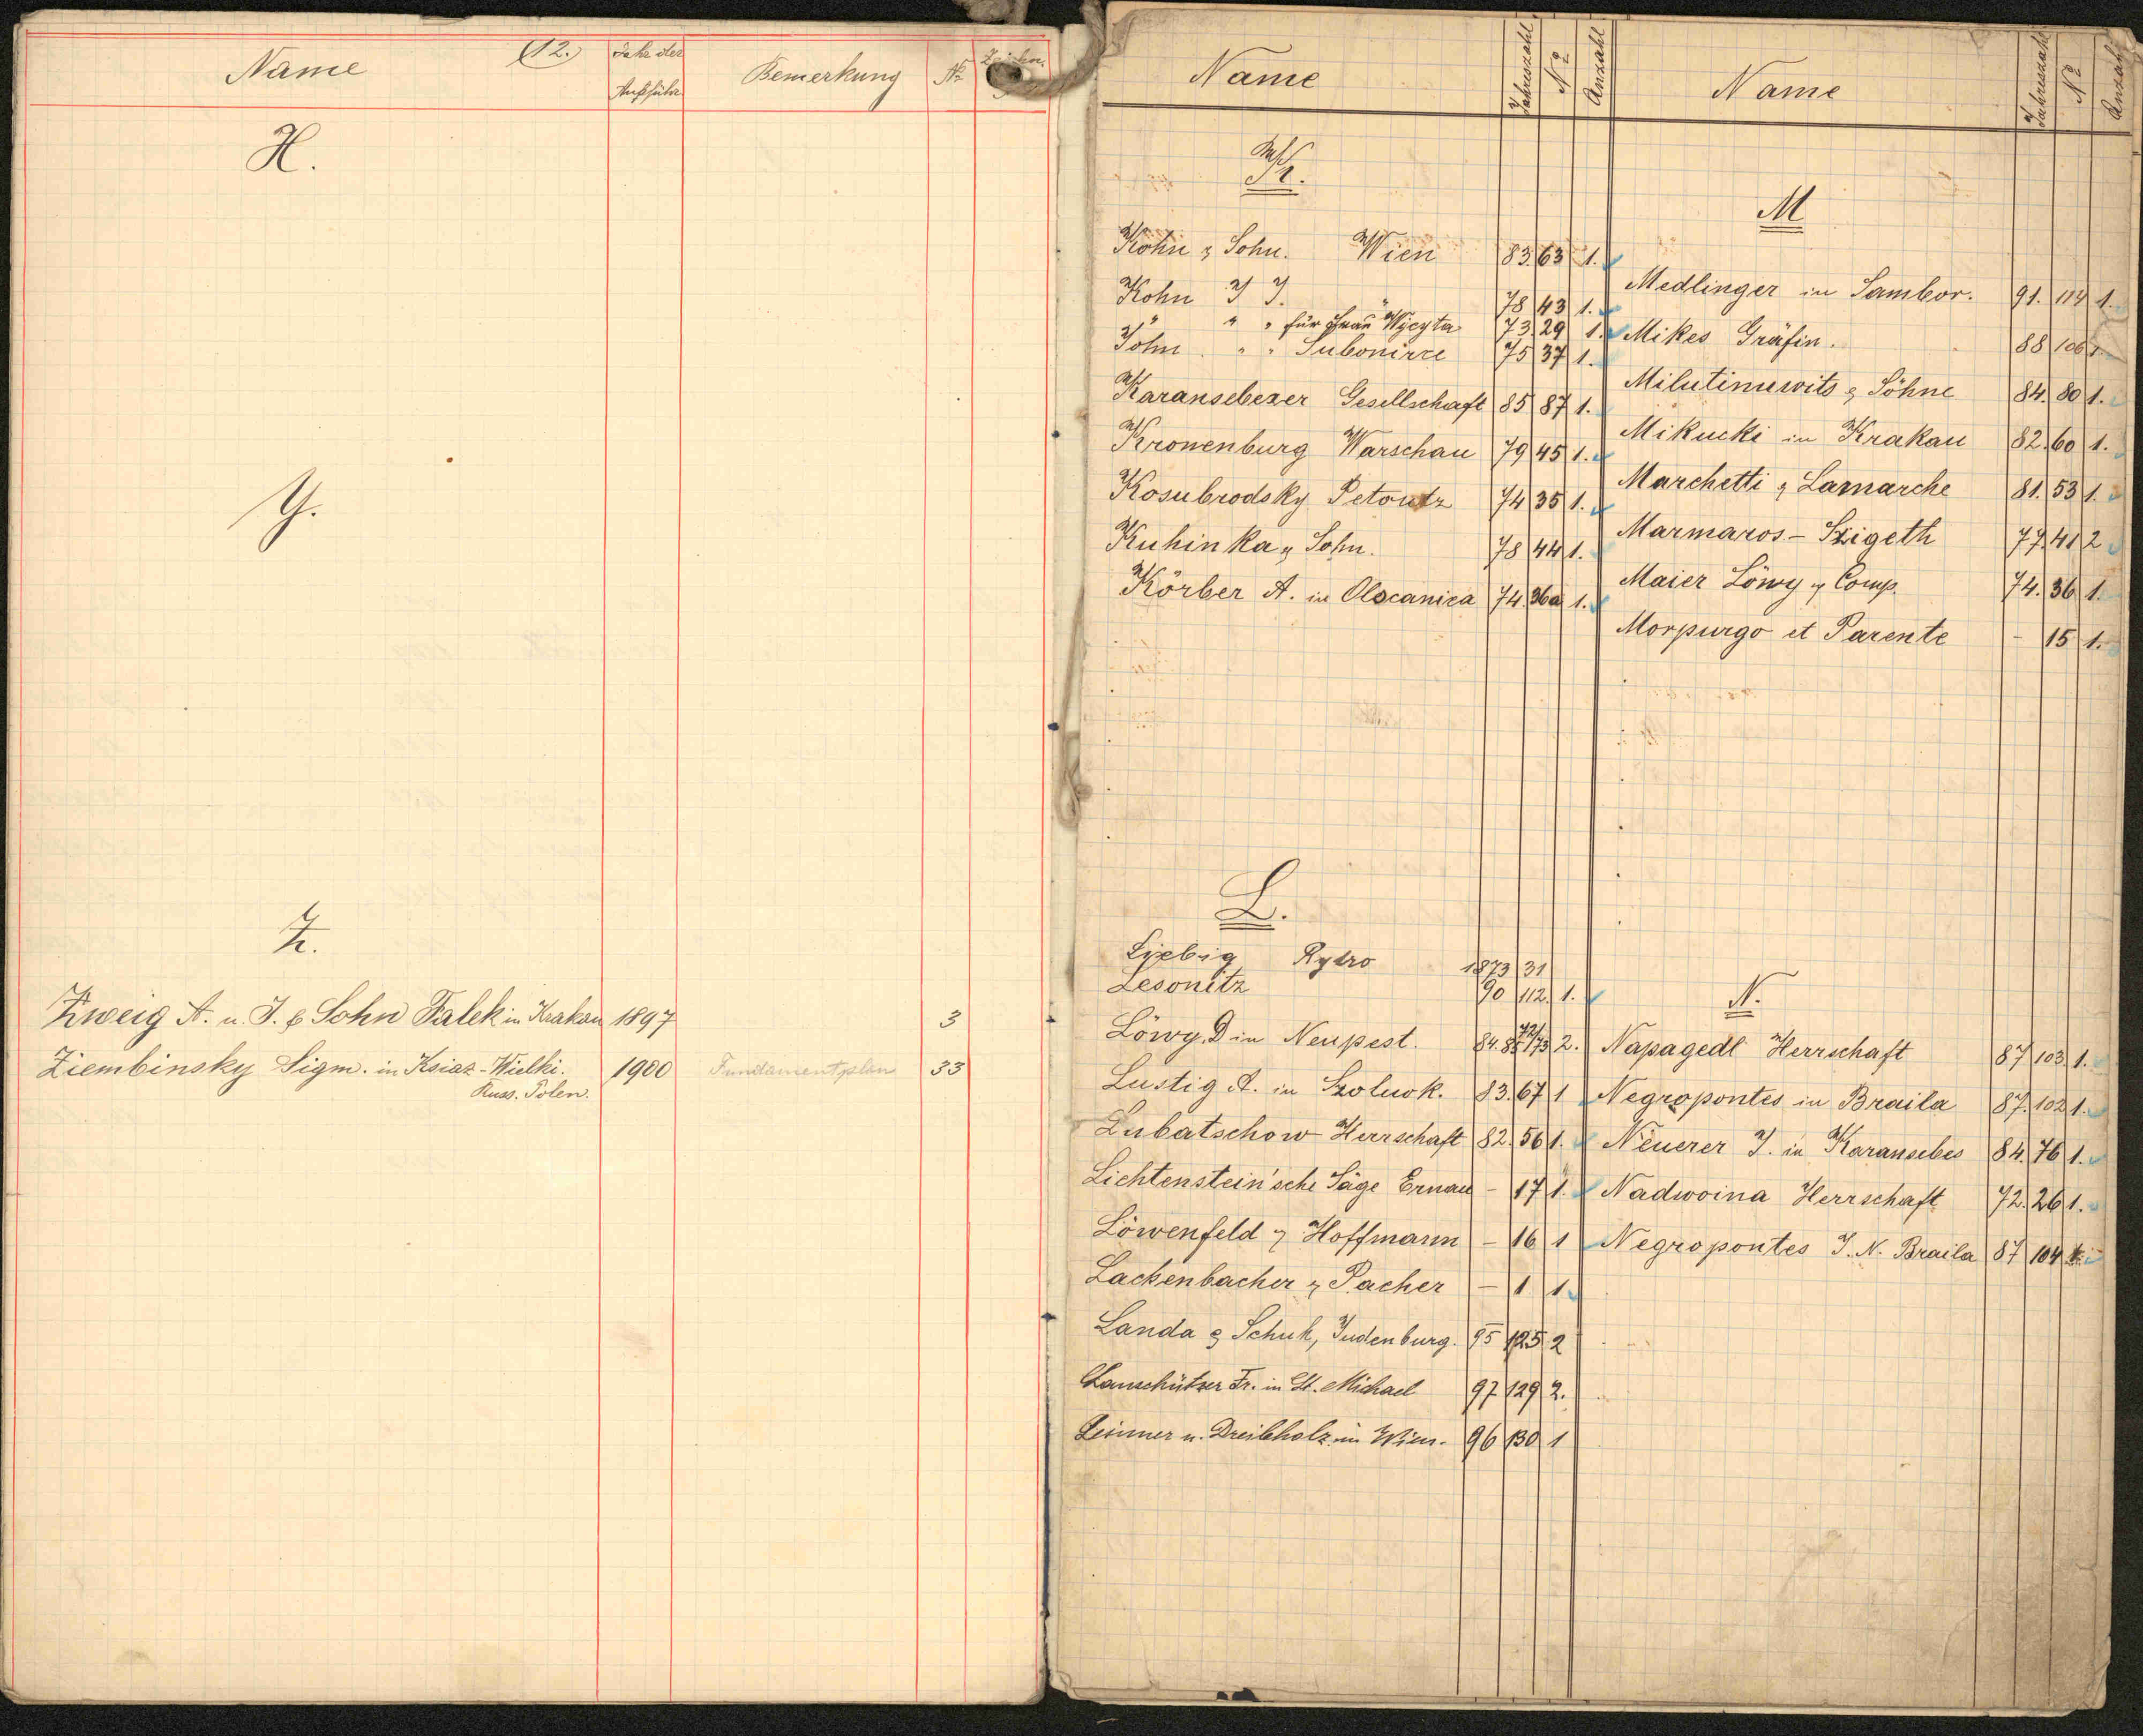 Name (12.) Jahr der Ausführ. Bemerkung No
H.
Y.
Z.
Zweig A. u. J. & Sohn Falek in Krakau 1897 3
Ziembinsky Sigm. in Ksiaz-Wielki. 1900 Fundamentplan 33
Russ. Polen.
Name Jahreszahl No Anzahl
K.
Kohn & Sohn. Wien 83. 63 1.
Kohn J J. 78 43 1.
" " " für Frau Wycyta 73. 29 1.
John " " Subonirce 75 37 1.
Karansebeser Gesellschaft 85 87 1.
Kronenburg Warschau 79 45 1.
Kosubrodsky Petoutz 74 35 1.
Kuhinka & Sohn. 78 44 1.
Körber A. in Olocanica 74. 36a 1.
L.
Liebig Rytro 1873 31
Lesonitz 90 112. 1.
Löwy D in Neupest. 84. 85 72/73 2.
Lustig A. in Szolnok. 83. 67 1
Lubatschow Herrschaft 82. 56 1.
Lichtenstein'sche Säge Ernau – 17 1.
Löwenfeld & Hoffmann – 16 1
Lackenbacher & Pacher – 1 1
Landa & Schuh, Judenburg. 95 125 2
Lanschützer Fr. in St. Michael 97 129 2.
u. in Wien. 96 130 1
Name Jahreszahl No Anzahl
M
Medlinger in Sambor. 91. 114 1.
Mikes Gräfin. 88 106 1.
Milutinuwits & Söhne 84. 80 1.
Mikucki in Krakau 82. 60 1.
Marchetti & Lamarche 81. 53 1.
Marmaros-Szigeth 77. 41 2
Maier Löwy & Comp. 74. 36 1.
Morpurgo et Parente – 15 1.
N.
Napagedl Herrschaft 87 103. 1.
Negropontes in Braila 87. 102 1.
Neuerer J. in Karansebes 84. 76 1.
Nadwoina Herrschaft 72. 26 1.
Negropontes J. N. Braila 87 104